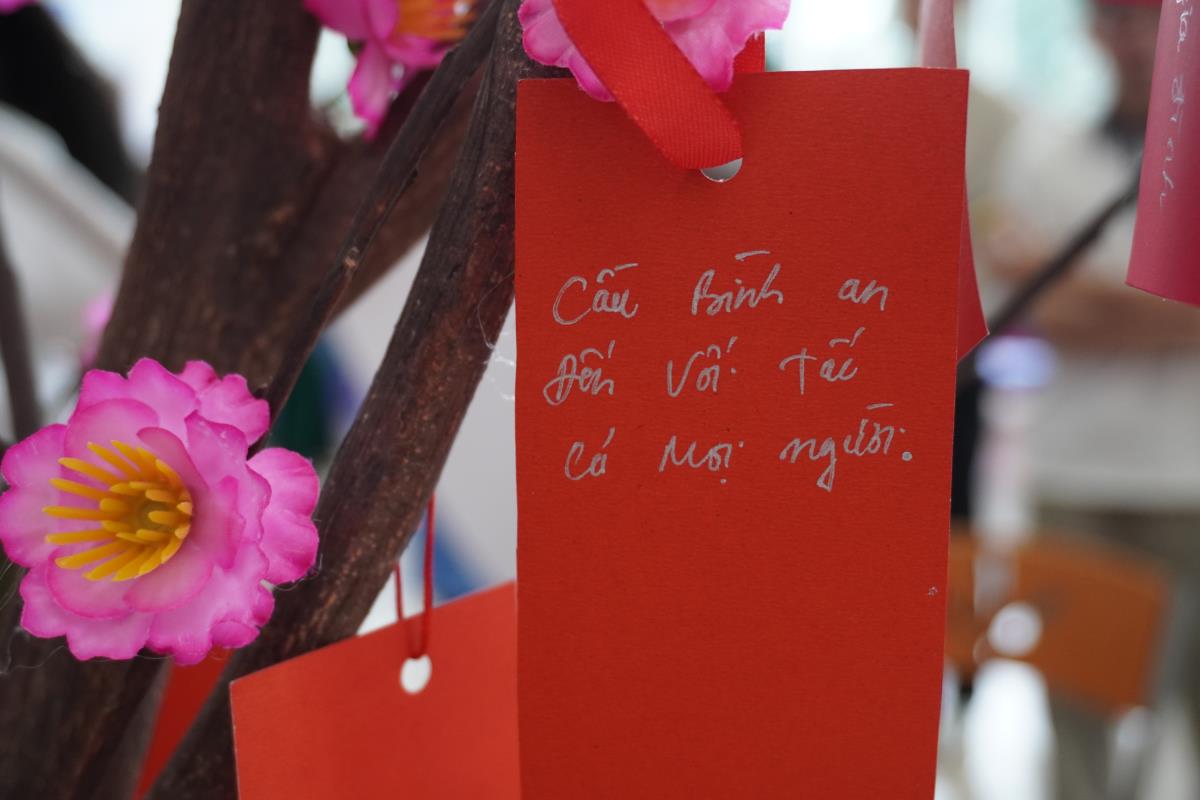 Cầu Bình an
Đến với tất
cả mọi người.